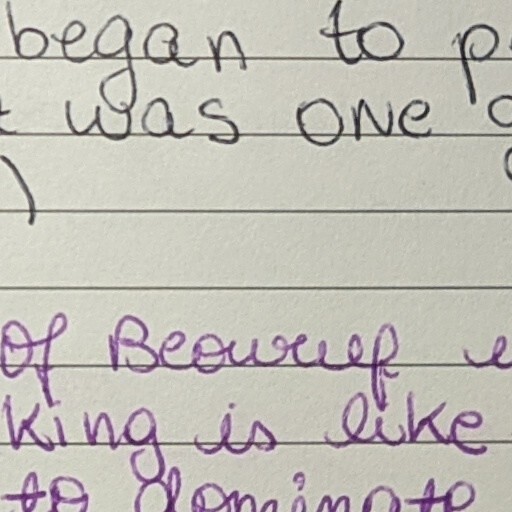 began to
was one
)
of Beowulf
king is like
to dominate